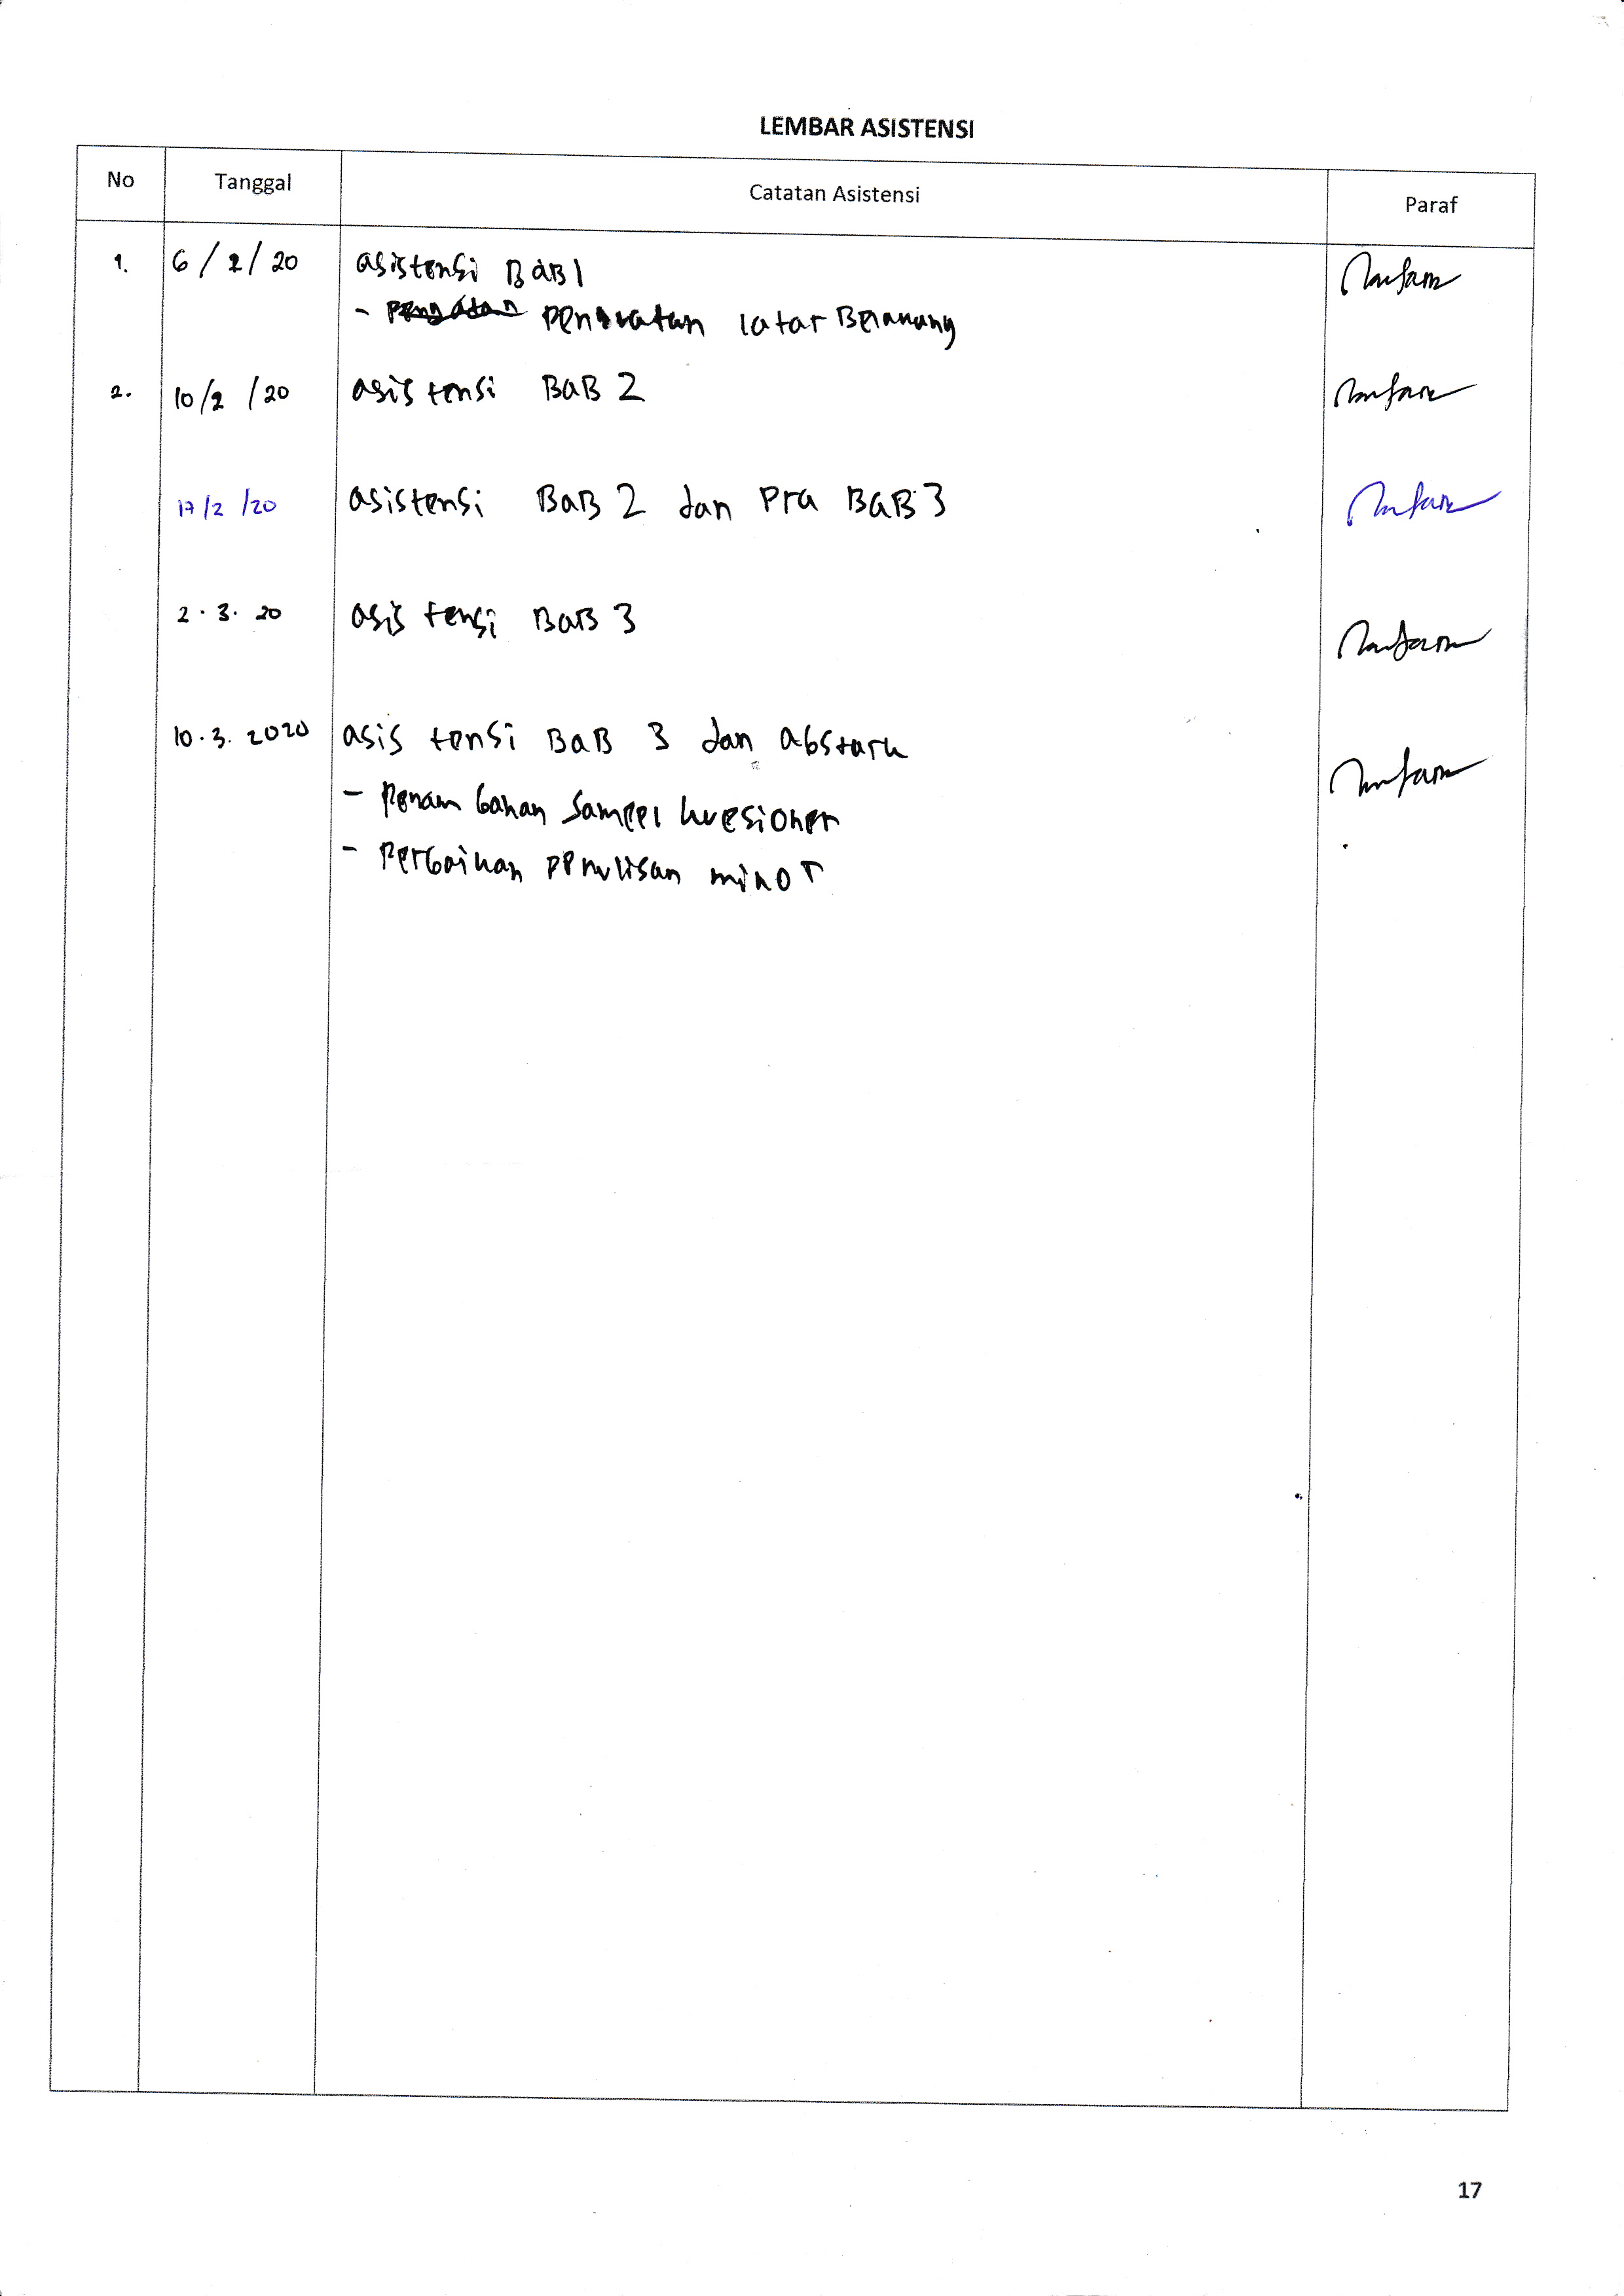 LEMBAR ASISTENSI
No Tanggal Catatan Asistensi Paraf
1. 6/2/20 asistensi BAB 1
- penguatan latar Belakang
2. 10/2/20 asistensi BAB 2
17/2/20 asistensi BAB 2 dan Pra BAB 3
2.3.20 asistensi BAB 3
10.3.2020 asistensi BAB 3 dan abstark
- Penambahan Sampel kuesioner
- Perbaikan penulisan minor
17